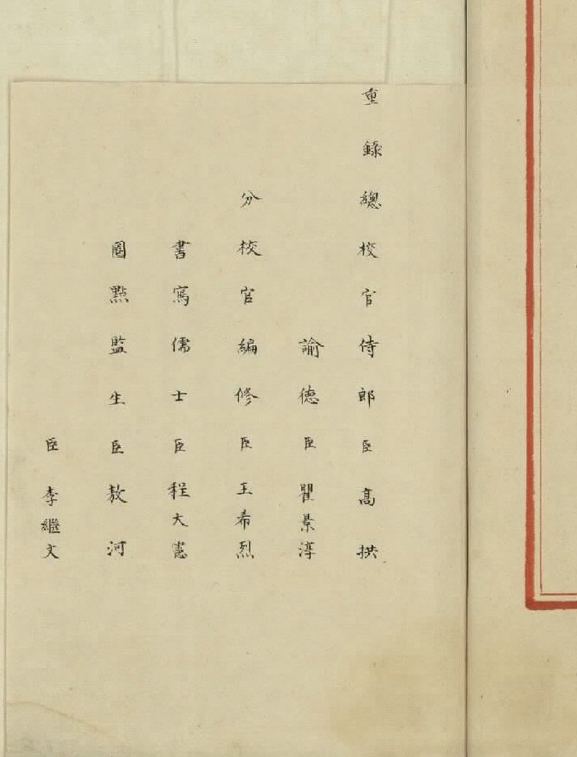 重錄總校官侍郎臣高拱
諭德臣瞿景淳
分校官編修臣王希烈
書寫儒士臣程大憲
圈點監生臣敖河
臣李繼文